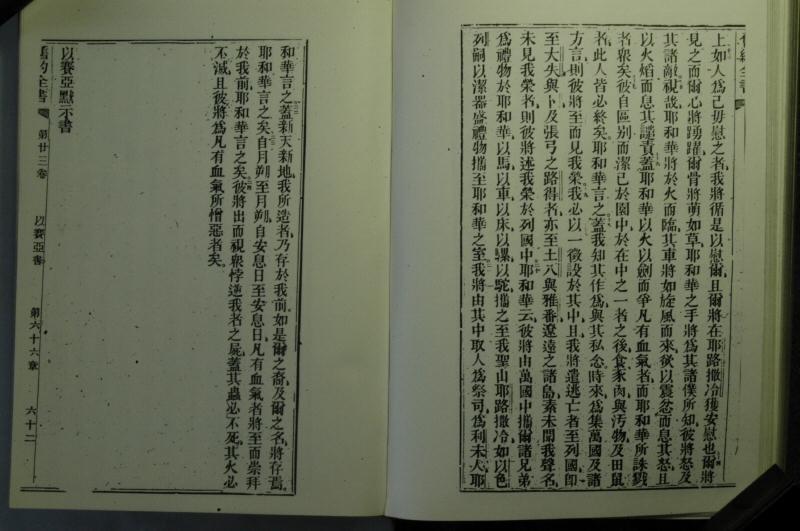 上如人爲己毋慰之者我將循是以慰爾且爾將在耶路撒冷獲安慰也爾將
見之而爾心將踴躍爾骨將萌如草耶和華之手將爲其諸僕所知彼將怒及
其諸敵視哉耶和華將於火而臨其車將如旋風而來欲以震忿而息其怒且
以火熖而息其譴責蓋耶和華以火以劍而爭凡有血氣者而耶和華所誅戮
者衆矣彼自區别而潔己於園中於在中之一者之後食豕肉與汚物及田鼠
者此人皆必終矣耶和華言之蓋我知其作爲與其私念時來爲集萬國及諸
方言則彼將至而見我榮我必以一徵設於其中且我將遣逃亡者至列國卽
至大失與卜及張弓之路得者亦至土八與雅番遼遠之諸島素未聞我聲名
未見我榮者則彼將述我榮於列國中耶和華云彼將由萬國中攜爾諸兄弟
爲禮物於耶和華以馬以車以床以騾以駝攜之至我聖山耶路撒冷如以色
列嗣以潔器盛禮物攜至耶和華之室我將由其中取人爲祭司爲利未人耶
和華言之蓋新天新地我所造者乃存於我前如是爾之裔及爾之名將存焉
耶和華言之矣自月朔至月朔自安息日至安息日凡有血氣者將至而崇拜
於我前耶和華言之矣彼將出而視衆悖逆我者之屍蓋其蟲必不死其火必
不滅且彼將爲凡有血氣所憎惡者矣
以賽亞默示書
舊約全書 第廿三卷 以賽亞書 第六十六章 六十二